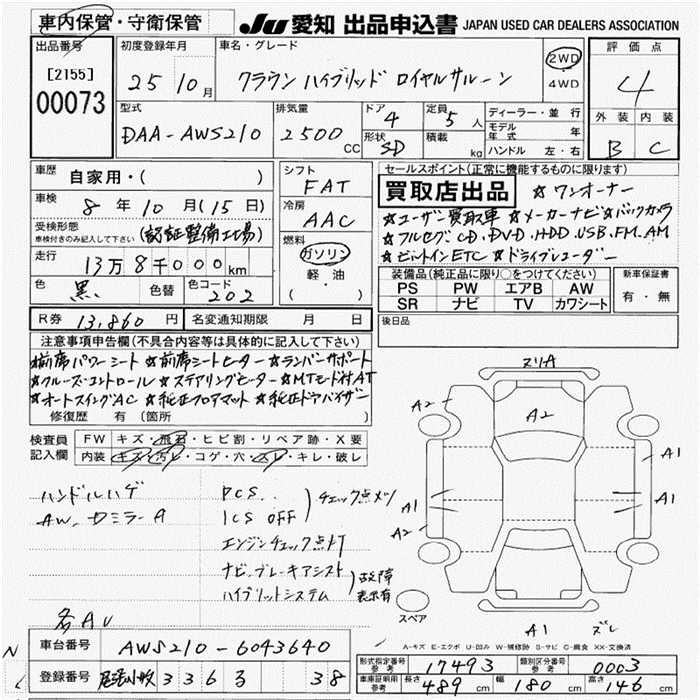 車内保管・守衛保管
JU 愛知 出品申込書 JAPAN USED CAR DEALERS ASSOCIATION
出品番号 初度登録年月 車名・グレード 評価点
[2155] 25 10月 クラウン ハイブリッド ロイヤルサルーン 2WD 4
00073 4WD
型式 排気量 ドア 4 定員 5人 ディーラー・並行 外装 内装
DAA-AWS210 2500CC 形状 SD 積載 kg モデル年式 年 B C
ハンドル 左・右
車歴 自家用・( ) シフト FAT セールスポイント(正常に機能するものに限ります)
車検 8年10月(15日) 冷房 AAC 買取店出品 ☆ワンオーナー
受検形態 ☆ユーザー買取車 ☆メーカーナビ☆バックカメラ
車検付きのみ記入して下さい (認証整備工場) 燃料 ガソリン ☆フルセグ.CD.DVD.HDD.USB.FM.AM
走行 13万8千000km 軽油 ☆ビルトインETC ☆ドライブレコーダー
色 黒 色替 色コード 202 ・( )
装備品(純正品に限り○をつけてください) 新車保証書
PS PW エアB AW 有・無
SR ナビ TV カワシート
R券 13,860円 名変通知期限 月 日 後日品
注意事項申告欄(不具合内容等は具体的に記入して下さい)
☆前席パワーシート ☆前席シートヒーター ☆ランバーサポート
☆クルーズコントロール ☆ステアリングヒーター ☆MTモード付AT
☆オートスイングAC ☆純正フロアマット ☆純正ドアバイザー
修復歴 有 (箇所 )
検査員記入欄 FW キズ・飛石・ヒビ割・リペア跡・X要
内装 キズ・汚レ・コゲ・穴・スレ・キレ・破レ
ハンドルハゲ PCS.. チェック点メツ
AW. ドミラーA ICS OFF
エンジンチェック点灯
ナビ.ブレーキアシスト 故障
ハイブリットシステム 表示有
各AU
ヌリA
A2
A2
A1
A1
A1
A2
スペア
A1 ズレ
A-キズ E-エクボ U-凹み W-補修跡 S-サビ C-腐食 XX-交換済
車台番号 AWS210-6043640
登録番号 尾張小牧 336 る 38
形式指定番号 参考 17493 類別区分番号 参考 0003
車庫証明用 参考 長さ 489cm 幅 180cm 高さ 146cm